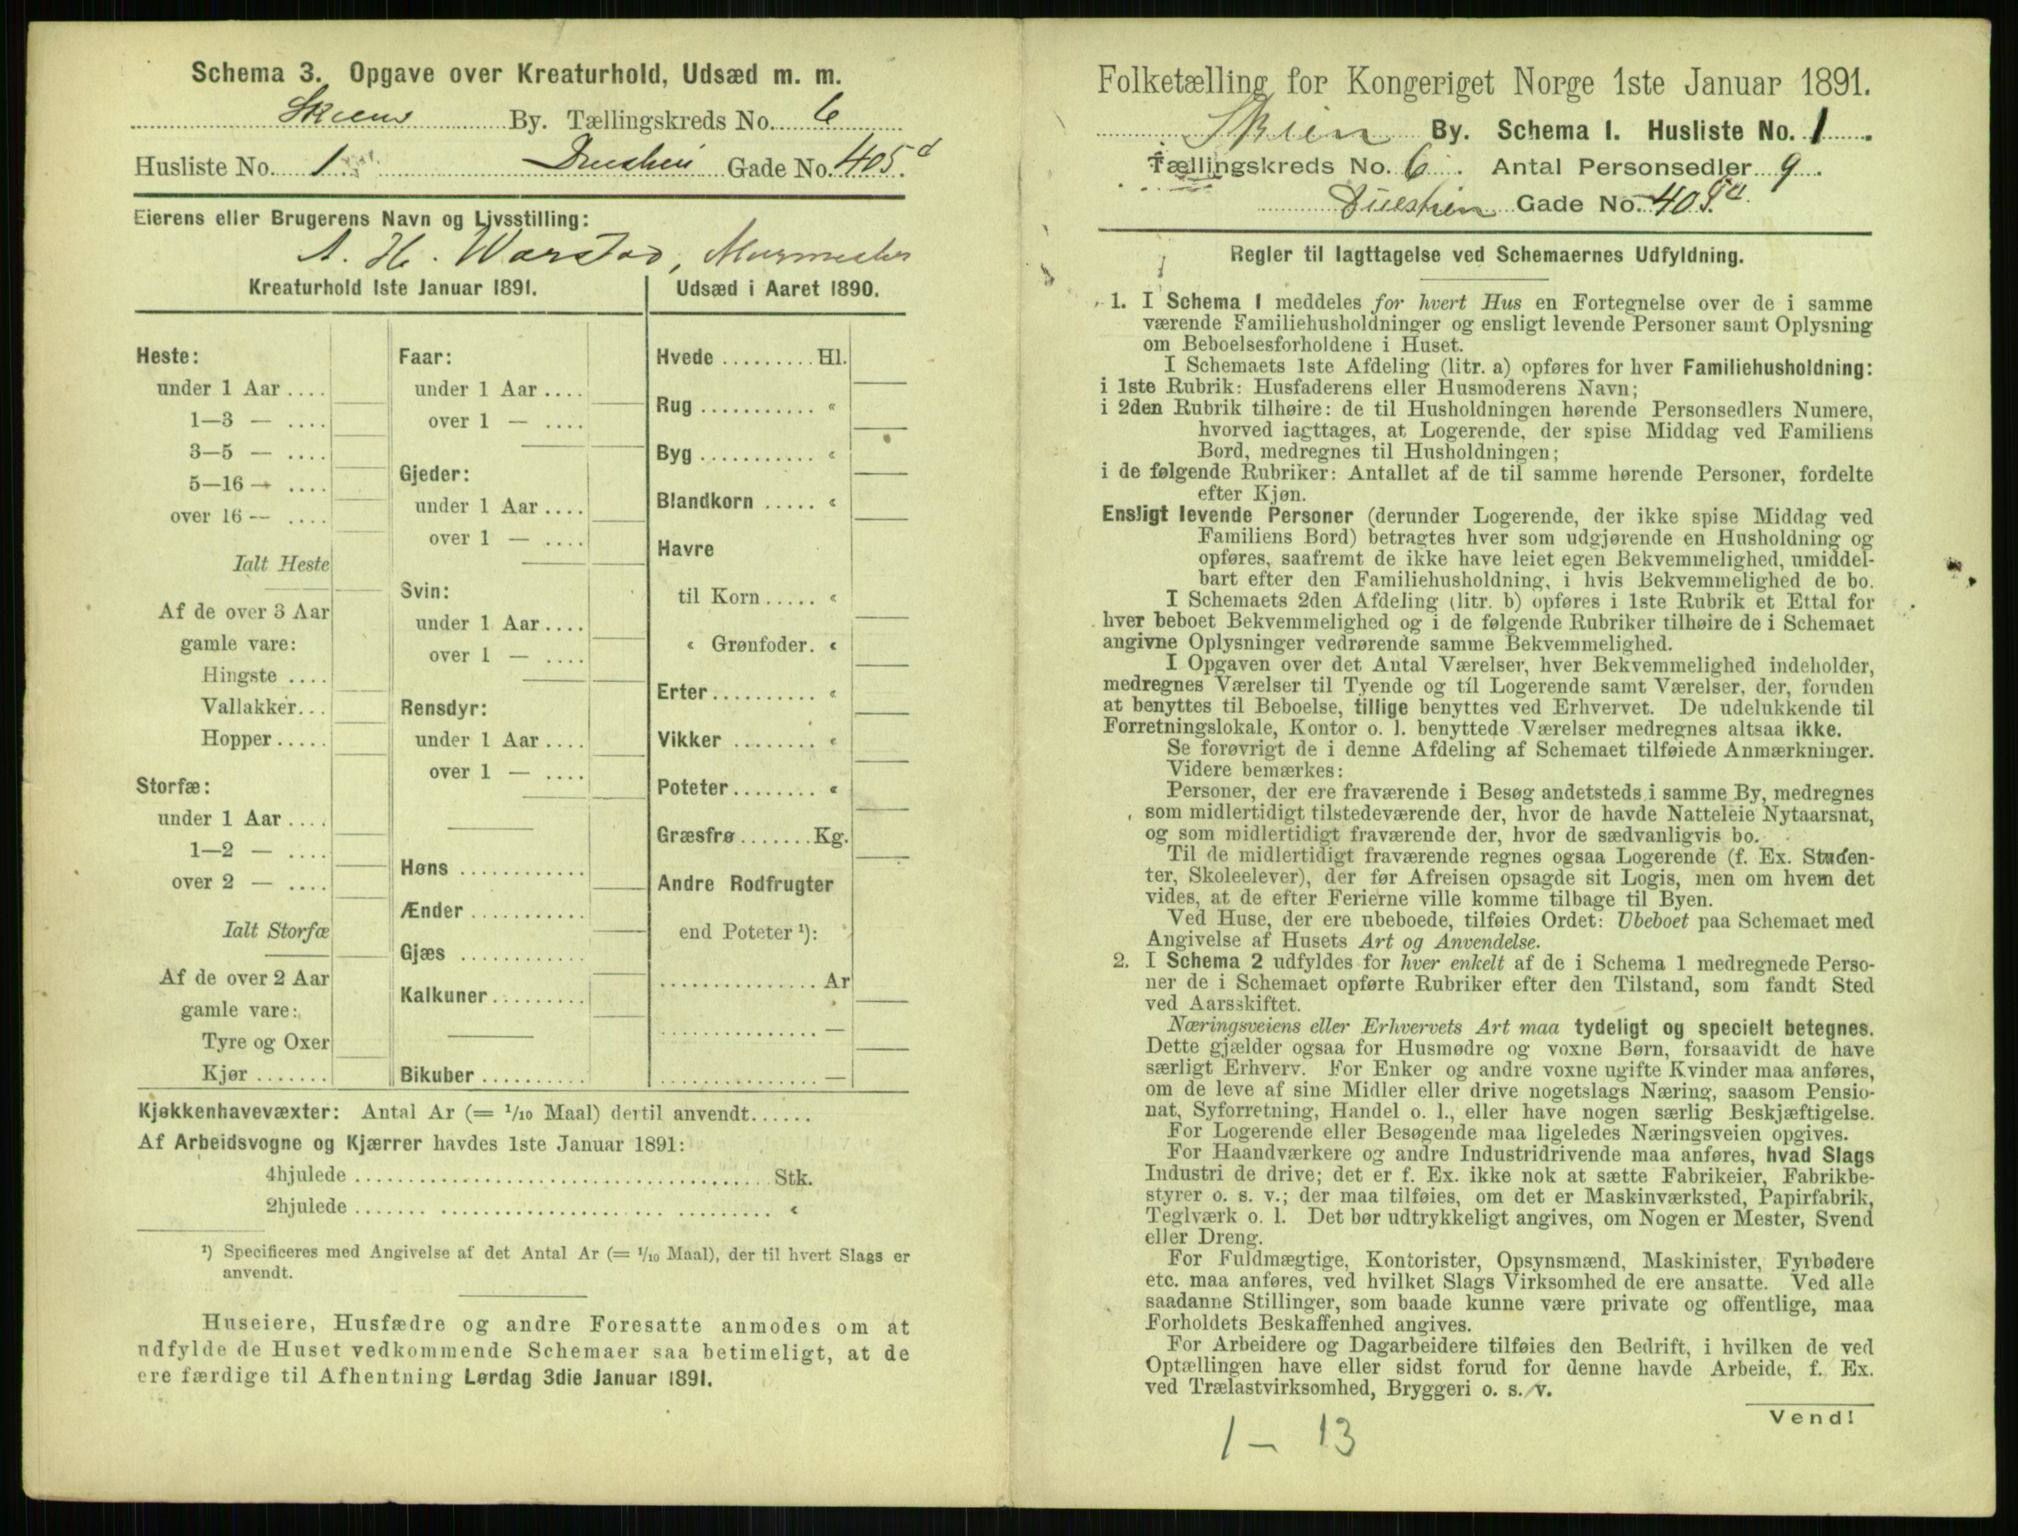 Schema 3. Opgave over Kreaturhold, Udsæd m. m.
Skiens By. Tællingskreds No. 6
Husliste No. 1 Duestien Gade No. 405 d
Eierens eller Brugerens Navn og Livsstilling:
A. H. Warstad, Murmester
Kreaturhold 1ste Januar 1891.
Heste:
under 1 Aar ....
1—3 — ....
3—5 — ....
5—16 — ....
over 16 — ....
Ialt Heste
Af de over 3 Aar
gamle vare:
Hingste ....
Vallakker...
Hopper .....
Storfæ:
under 1 Aar ....
1—2 — ....
over 2 — ....
Ialt Storfæ
Af de over 2 Aar
gamle vare:
Tyre og Oxer
Kjør .......
Faar:
under 1 Aar ....
over 1 — ....
Gjeder:
under 1 Aar ....
over 1 — ....
Svin:
under 1 Aar ....
over 1 — ....
Rensdyr:
under 1 Aar ....
over 1 — ....
Høns ............
Ænder ...........
Gjæs ............
Kalkuner.........
Bikuber ..........
Udsæd i Aaret 1890.
Hvede ......... Hl.
Rug ........... «
Byg ........... «
Blandkorn ..... «
Havre
til Korn ..... «
« Grønfoder. «
Erter.......... «
Vikker ........ «
Poteter........ «
Græsfrø ....... Kg.
Andre Rodfrugter
end Poteter ¹):
............... Ar
............... —
............... —
Kjøkkenhavevæxter: Antal Ar (= 1/10 Maal) dertil anvendt......
Af Arbeidsvogne og Kjærrer havdes 1ste Januar 1891:
4hjulede ...................................... Stk.
2hjulede ...................................... «
¹) Specificeres med Angivelse af det Antal Ar (= 1/10 Maal), der til hvert Slags er
anvendt.
Huseiere, Husfædre og andre Foresatte anmodes om at
udfylde de Huset vedkommende Schemaer saa betimeligt, at de
ere færdige til Afhentning Lørdag 3die Januar 1891.
Folketælling for Kongeriget Norge 1ste Januar 1891.
Skien By. Schema I. Husliste No. 1
Tællingskreds No. 6. Antal Personsedler 9.
Duestien Gade No. 405 d.
Regler til Iagttagelse ved Schemaernes Udfyldning.
1. I Schema 1 meddeles for hvert Hus en Fortegnelse over de i samme
værende Familiehusholdninger og ensligt levende Personer samt Oplysning
om Beboelsesforholdene i Huset.
I Schemaets 1ste Afdeling (litr. a) opføres for hver Familiehusholdning:
i 1ste Rubrik: Husfaderens eller Husmoderens Navn;
i 2den Rubrik tilhøire: de til Husholdningen hørende Personsedlers Numere,
hvorved iagttages, at Logerende, der spise Middag ved Familiens
Bord, medregnes til Husholdningen;
i de følgende Rubriker: Antallet af de til samme hørende Personer, fordelte
efter Kjøn.
Ensligt levende Personer (derunder Logerende, der ikke spise Middag ved
Familiens Bord) betragtes hver som udgjørende en Husholdning og
opføres, saafremt de ikke have leiet egen Bekvemmelighed, umiddel-
bart efter den Familiehusholdning, i hvis Bekvemmelighed de bo.
I Schemaets 2den Afdeling (litr. b) opføres i 1ste Rubrik et Ettal for
hver beboet Bekvemmelighed og i de følgende Rubriker tilhøire de i Schemaet
angivne Oplysninger vedrørende samme Bekvemmelighed.
I Opgaven over det Antal Værelser, hver Bekvemmelighed indeholder,
medregnes Værelser til Tyende og til Logerende samt Værelser, der, foruden
at benyttes til Beboelse, tillige benyttes ved Erhvervet. De udelukkende til
Forretningslokale, Kontor o. l. benyttede Værelser medregnes altsaa ikke.
Se forøvrigt de i denne Afdeling af Schemaet tilføiede Anmærkninger.
Videre bemærkes:
Personer, der ere fraværende i Besøg andetsteds i samme By, medregnes
som midlertidigt tilstedeværende der, hvor de havde Natteleie Nytaarsnat,
og som midlertidigt fraværende der, hvor de sædvanligvis bo.
Til de midlertidigt fraværende regnes ogsaa Logerende (f. Ex. Studen-
ter, Skoleelever), der før Afreisen opsagde sit Logis, men om hvem det
vides, at de efter Ferierne ville komme tilbage til Byen.
Ved Huse, der ere ubeboede, tilføies Ordet: Ubeboet paa Schemaet med
Angivelse af Husets Art og Anvendelse.
2. I Schema 2 udfyldes for hver enkelt af de i Schema 1 medregnede Perso-
ner de i Schemaet opførte Rubriker efter den Tilstand, som fandt Sted
ved Aarsskiftet.
Næringsveiens eller Erhvervets Art maa tydeligt og specielt betegnes.
Dette gjælder ogsaa for Husmødre og voxne Børn, forsaavidt de have
særligt Erhverv. For Enker og andre voxne ugifte Kvinder maa anføres,
om de leve af sine Midler eller drive nogetslags Næring, saasom Pensio-
nat, Syforretning, Handel o. l., eller have nogen særlig Beskjæftigelse.
For Logerende eller Besøgende maa ligeledes Næringsveien opgives.
For Haandværkere og andre Industridrivende maa anføres, hvad Slags
Industri de drive; det er f. Ex. ikke nok at sætte Fabrikeier, Fabrikbe-
styrer o. s. v.; der maa tilføies, om det er Maskinværksted, Papirfabrik,
Teglværk o. l. Det bør udtrykkeligt angives, om Nogen er Mester, Svend
eller Dreng.
For Fuldmægtige, Kontorister, Opsynsmænd, Maskinister, Fyrbødere
etc. maa anføres, ved hvilket Slags Virksomhed de ere ansatte. Ved alle
saadanne Stillinger, som baade kunne være private og offentlige, maa
Forholdets Beskaffenhed angives.
For Arbeidere og Dagarbeidere tilføies den Bedrift, i hvilken de ved
Optællingen have eller sidst forud for denne havde Arbeide, f. Ex.
ved Trælastvirksomhed, Bryggeri o. s. v.
Vend!
1 — 13